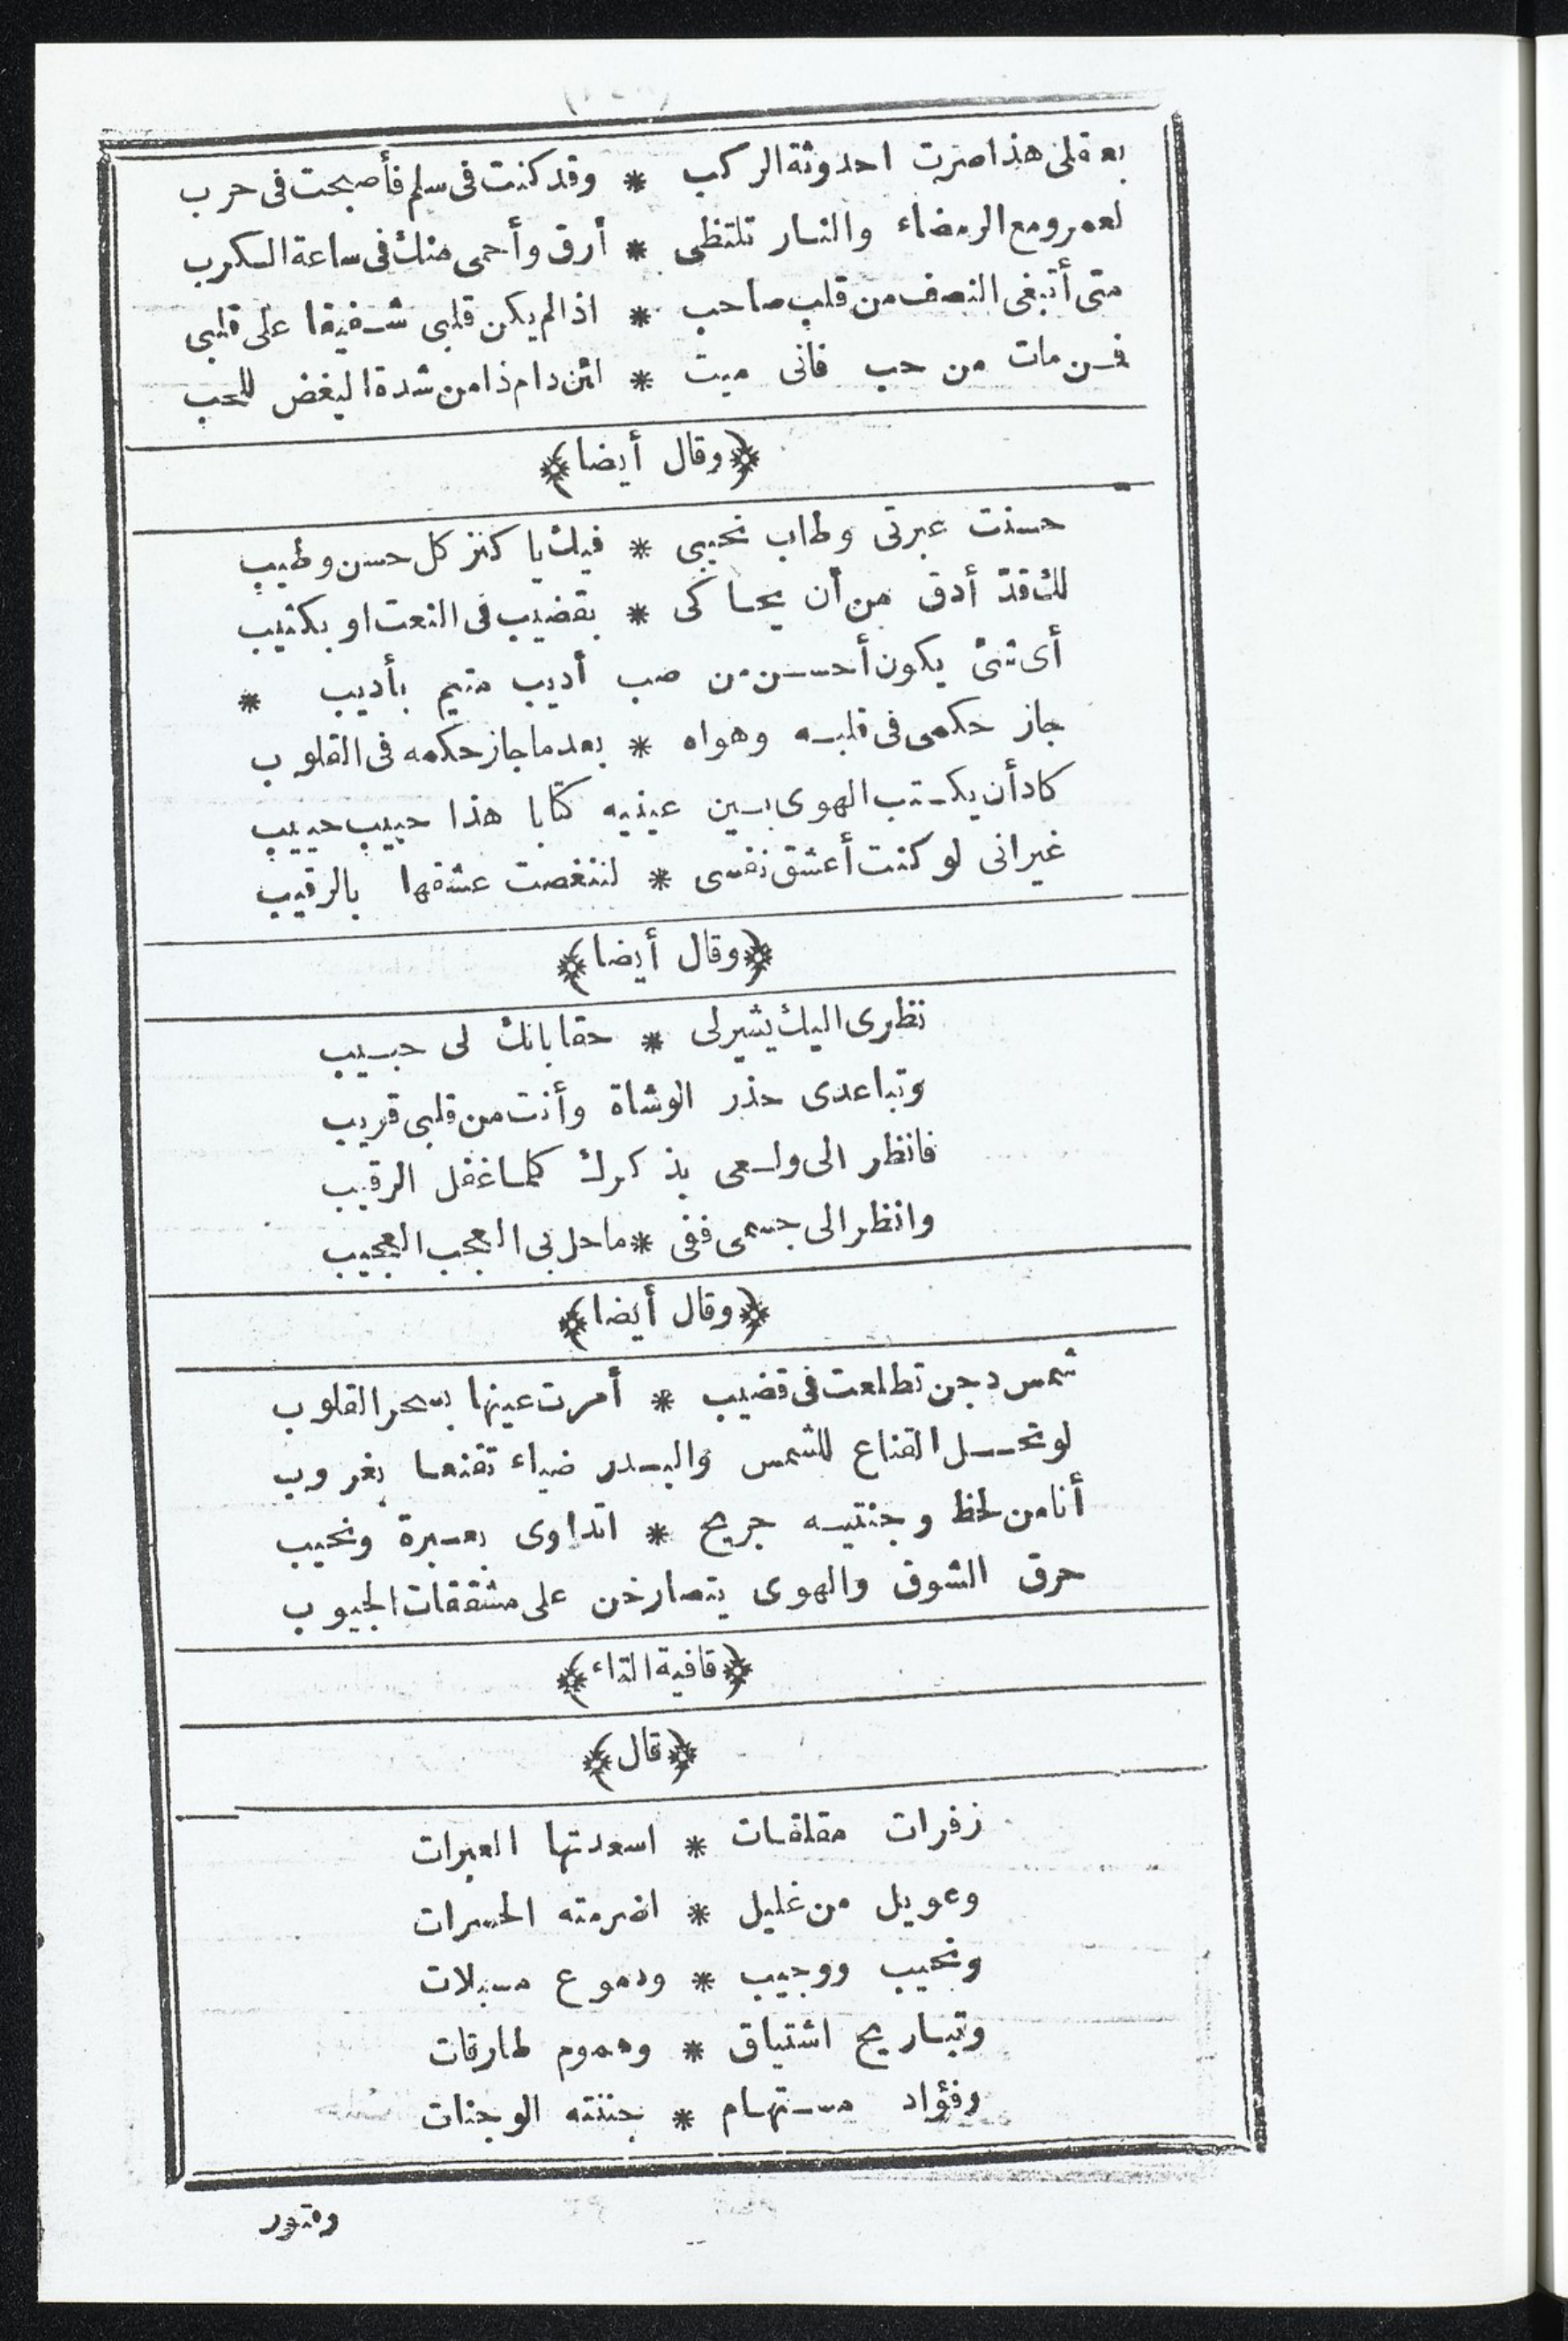 بعقلى هذا صرت احدوثة الركب * وقد كنت فى سلم فأصبحت فى حرب
لعمرو مع الرمضاء والنار تلتظى * أرق وأحمى منك فى ساعة الكرب
متى أتبغى النصف من قلب صاحب * اذا لم يكن قلبى شفيقا على قلبى
فمن مات من حب فانى ميت * لئن دام ذا من شدة البغض للمحب
﴿وقال أيضا﴾
حسنت عبرتى وطاب نحيبى * فيك يا كنز كل حسن وطيب
لك قدّ أدق من أن يحاكى * بقضيب فى النعت او بكثيب
أى شئ يكون أحسن من صب أديب متيم بأديب *
جاز حكمى فى قلبه وهواه * بعد ما جاز حكمه فى القلوب
كاد أن يكتب الهوى بين عينيه كتابا هذا حبيب حبيب
غير انى لو كنت أعشق نفسى * لتنغصت عشقها بالرقيب
﴿وقال أيضا﴾
نظرى اليك يشير لى * حقا بانك لى حبيب
وتباعدى حذر الوشاة وأنت من قلبى قريب
فانظر الى ولعى بذكرك كلما غفل الرقيب
وانظر الى جسمى ففى * ما حل بى العجب العجيب
﴿وقال أيضا﴾
شمس دجن تطلعت فى قضيب * أمرت عينها بسحر القلوب
لو تحل القناع للشمس والبدر ضياء تقنعا بغروب
أنا من لحظ وجنتيه جريح * اتداوى بعبرة ونحيب
حرق الشوق والهوى يتصارخن على مشققات الجيوب
﴿قافية التاء﴾
﴿قال﴾
زفرات مقلقات * اسعدتها العبرات
وعويل من غليل * اضرمته الحسرات
ونحيب ووجيب * ودموع مسبلات
وتباريح اشتياق * وهموم طارقات
وفؤاد مستهام * جننته الوجنات
وفتور